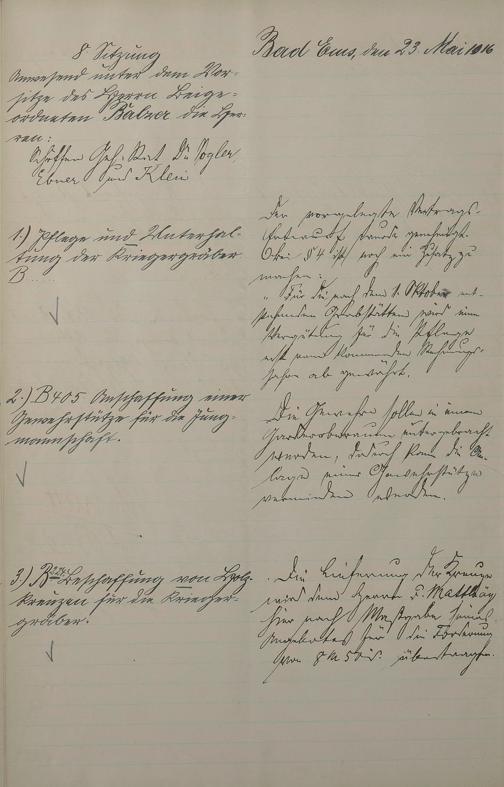 8. Sitzung
Anwesend unter dem Vor-
sitze des Herrn Beige-
ordneten Balzer die Her-
ren:
Schöffen Geh. Rat Dr. Vogler,
Ebner und Klein
Bad Ems, den 23. Mai 1916
1.) Pflege und Unterhal-
tung der Kriegergräber
B
Der vorgelegte Vertrags-
Entwurf wurde genehmigt.
Bei § 4 ist noch ein Zusatz zu
machen:
„Für die nach dem 1. Oktober ent-
stehenden Grabstätten wird eine
Vergütung für die Pflege
erst vom kommenden Rechnungs-
jahre ab gewährt.
2.) B 405 Anschaffung einer
Gewehrstütze für die Jung-
mannschaft.
Die Gewehre sollen in einem
Garderoberaum untergebracht
werden, dadurch kann die An-
lage einer Gewehrstütze
vermieden werden.
3.) B Beschaffung von Holz-
kreuzen für die Krieger-
gräber.
Die Lieferung der Kreuze
wird dem Herrn Matthäy
hier nach Massgabe seines
Angebotes für die Forderung
von 8 M 50 übertragen.